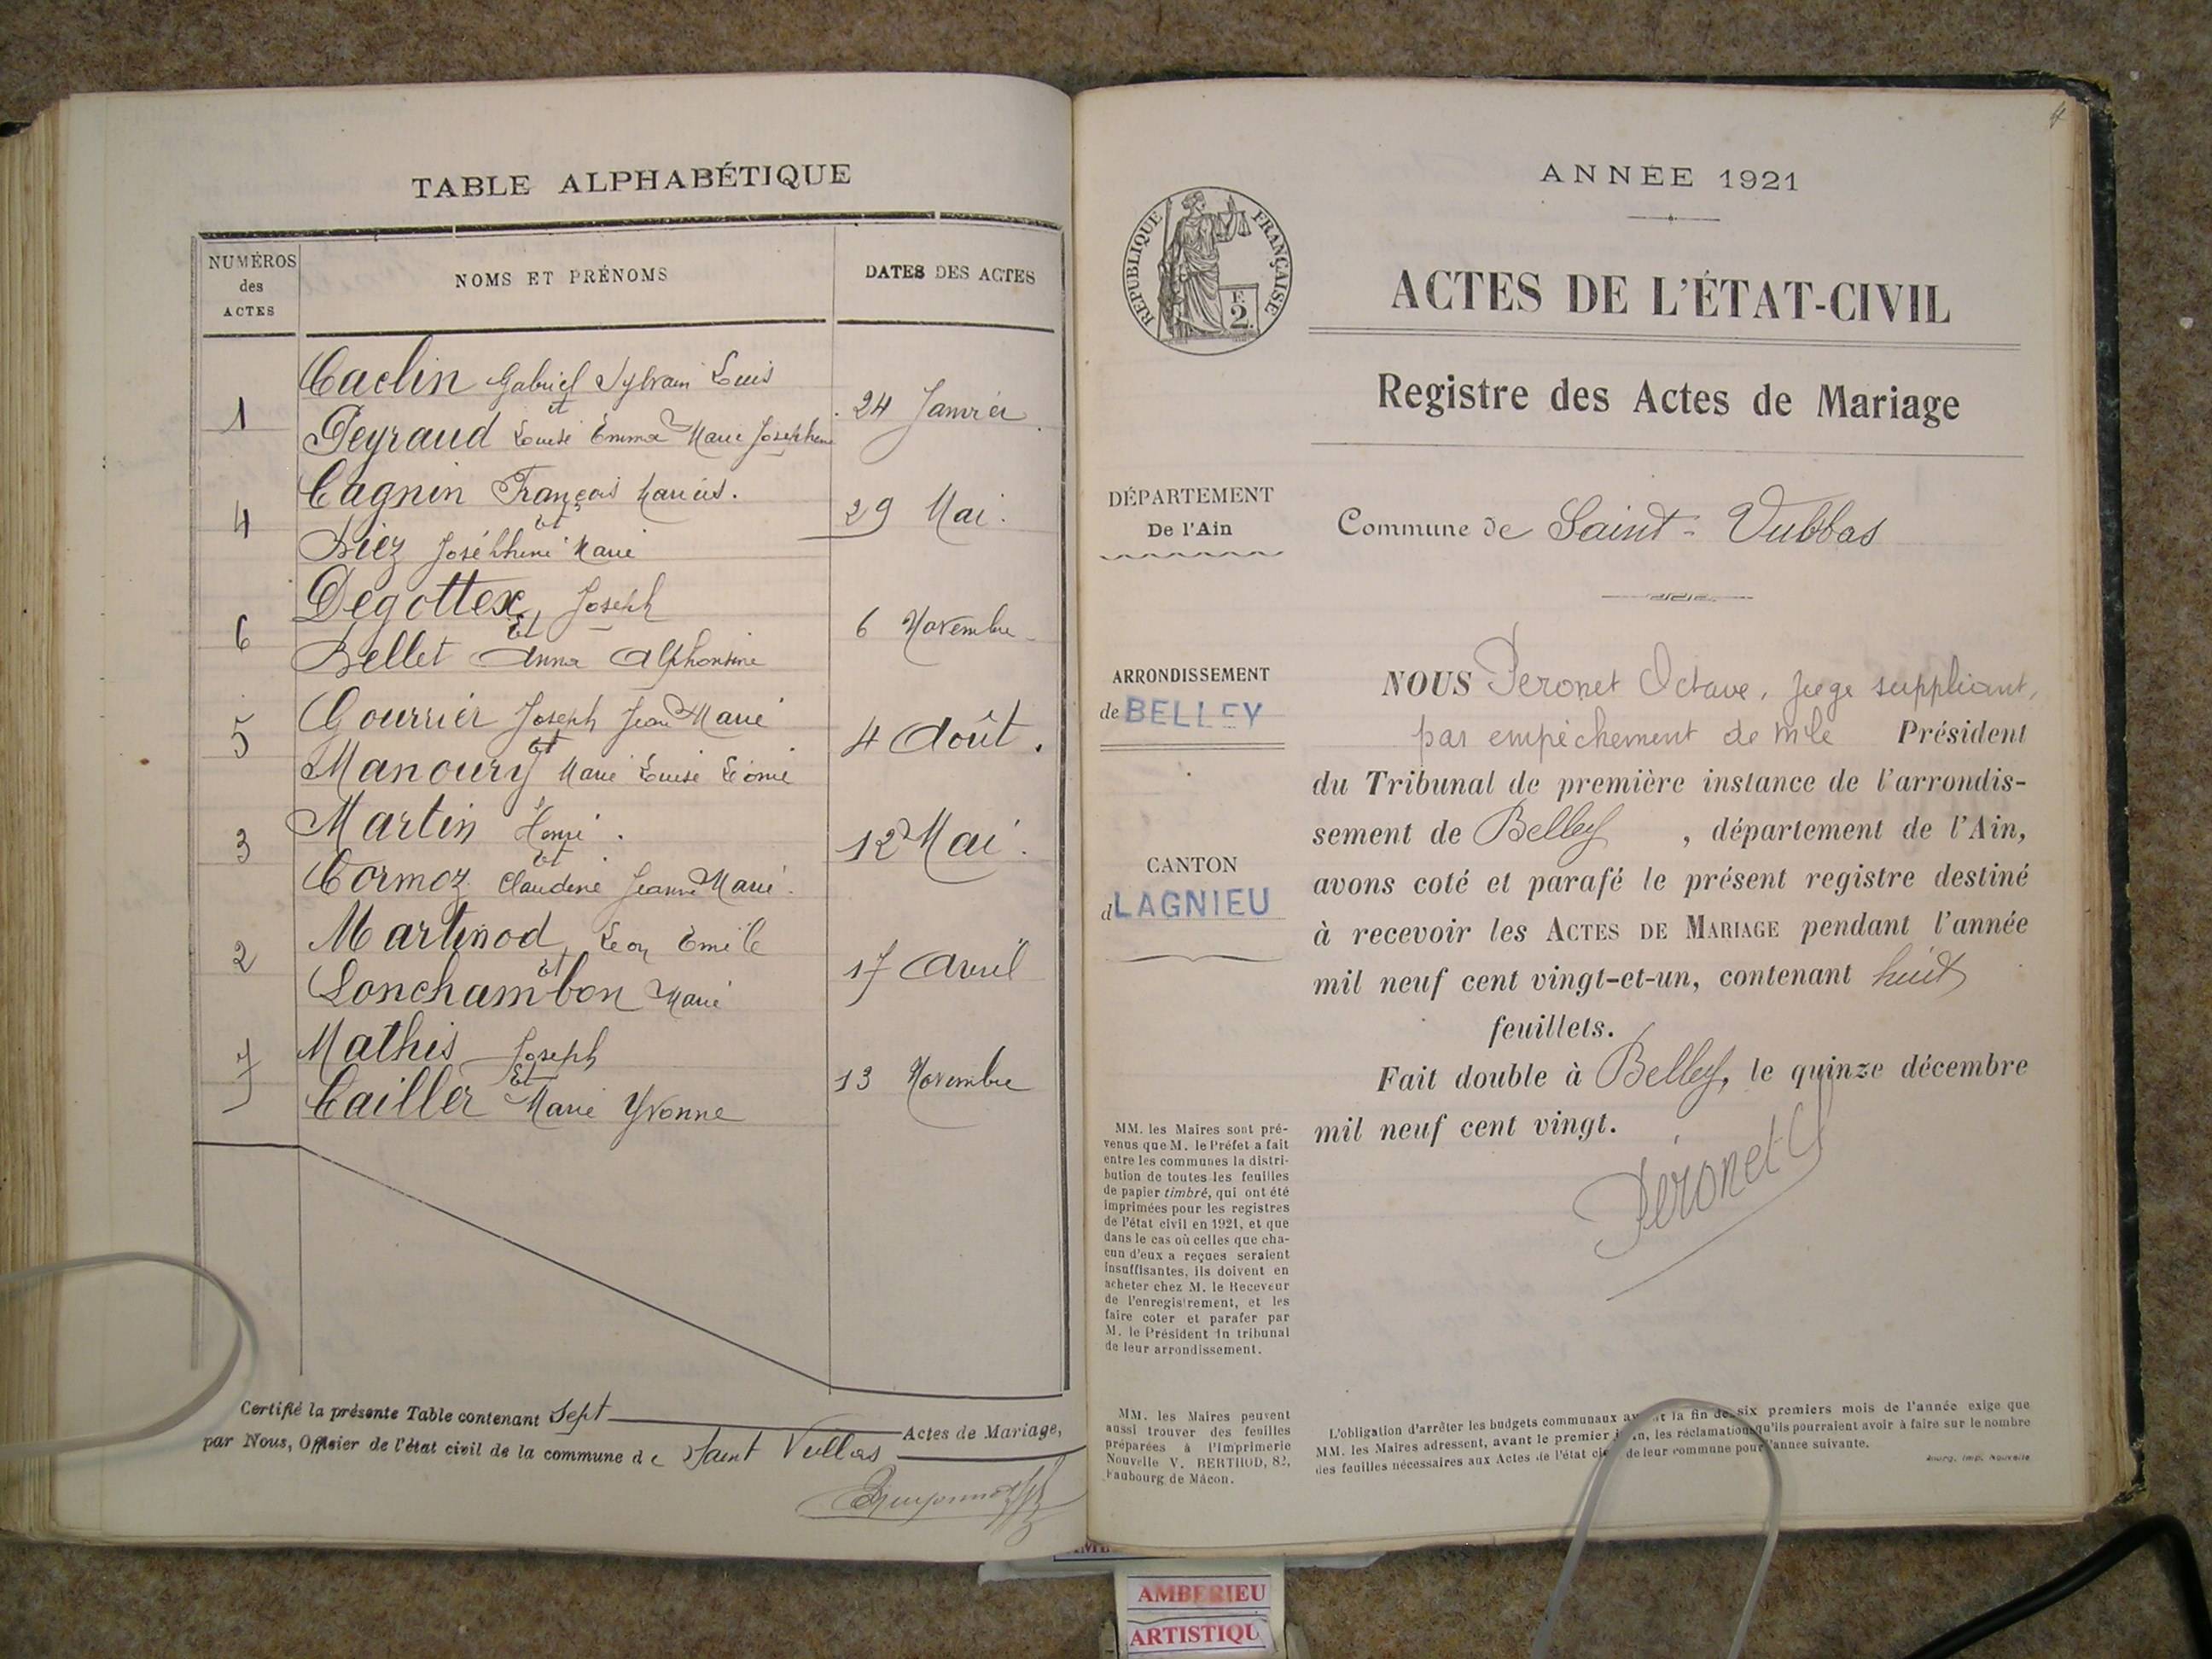 TABLE ALPHABÉTIQUE
NUMÉROS des ACTES
NOMS ET PRÉNOMS
DATES DES ACTES
1
Caclin Gabriel Sylvain Louis
et
Peyraud Louise Emma Marie Joséphine
24 Janvier
4
Cagnin François Marius.
et
Biez Joséphine Marie
29 Mai.
6
Degottex Joseph
Et
Bellet Anna Alphonsine
6 Novembre
5
Gourrier Joseph Jean Marie
et
Manoury Marie Louise Léonie
4 Août.
3
Martin Henri.
et
Cormoz Claudine Jeanne Marie.
12 Mai.
2
Martinod Léon Emile
et
Lonchambon Marie
17 Avril
7
Mathis Joseph
Et
Cailler Marie Yvonne
13 Novembre
Certifié la présente Table contenant Sept Actes de Mariage,
par Nous, Officier de l'état civil de la commune de Saint Vulbas
ANNÉE 1921
RÉPUBLIQUE FRANÇAISE
F.
2.
ACTES DE L'ÉTAT-CIVIL
Registre des Actes de Mariage
DÉPARTEMENT
De l'Ain
Commune de Saint-Vulbas
ARRONDISSEMENT
de BELLEY
CANTON
d LAGNIEU
NOUS Péronet Octave, juge suppléant,
par empêchement de Mr le Président
du Tribunal de première instance de l'arrondis-
sement de Belley, département de l'Ain,
avons coté et parafé le présent registre destiné
à recevoir les ACTES DE MARIAGE pendant l'année
mil neuf cent vingt-et-un, contenant huit
feuillets.
Fait double à Belley, le quinze décembre
mil neuf cent vingt.
Péronet
MM. les Maires sont pré-
venus que M. le Préfet a fait
entre les communes la distri-
bution de toutes les feuilles
de papier timbré, qui ont été
imprimées pour les registres
de l'état civil en 1921, et que
dans le cas où celles que cha-
cun d'eux a reçues seraient
insuffisantes, ils doivent en
acheter chez M. le Receveur
de l'enregistrement, et les
faire coter et parafer par
M. le Président du tribunal
de leur arrondissement.
MM. les Maires peuvent
aussi trouver des feuilles
préparées à l'Imprimerie
Nouvelle V. BERTHOD, 82,
Faubourg de Mâcon.
L'obligation d'arrêter les budgets communaux avant la fin des six premiers mois de l'année exige que
MM. les Maires adressent, avant le premier juin, les réclamations qu'ils pourraient avoir à faire sur le nombre
des feuilles nécessaires aux Actes de l'état civil de leur commune pour l'année suivante.
Bourg, Imp. Nouvelle
AMBERIEU
ARTISTIQU